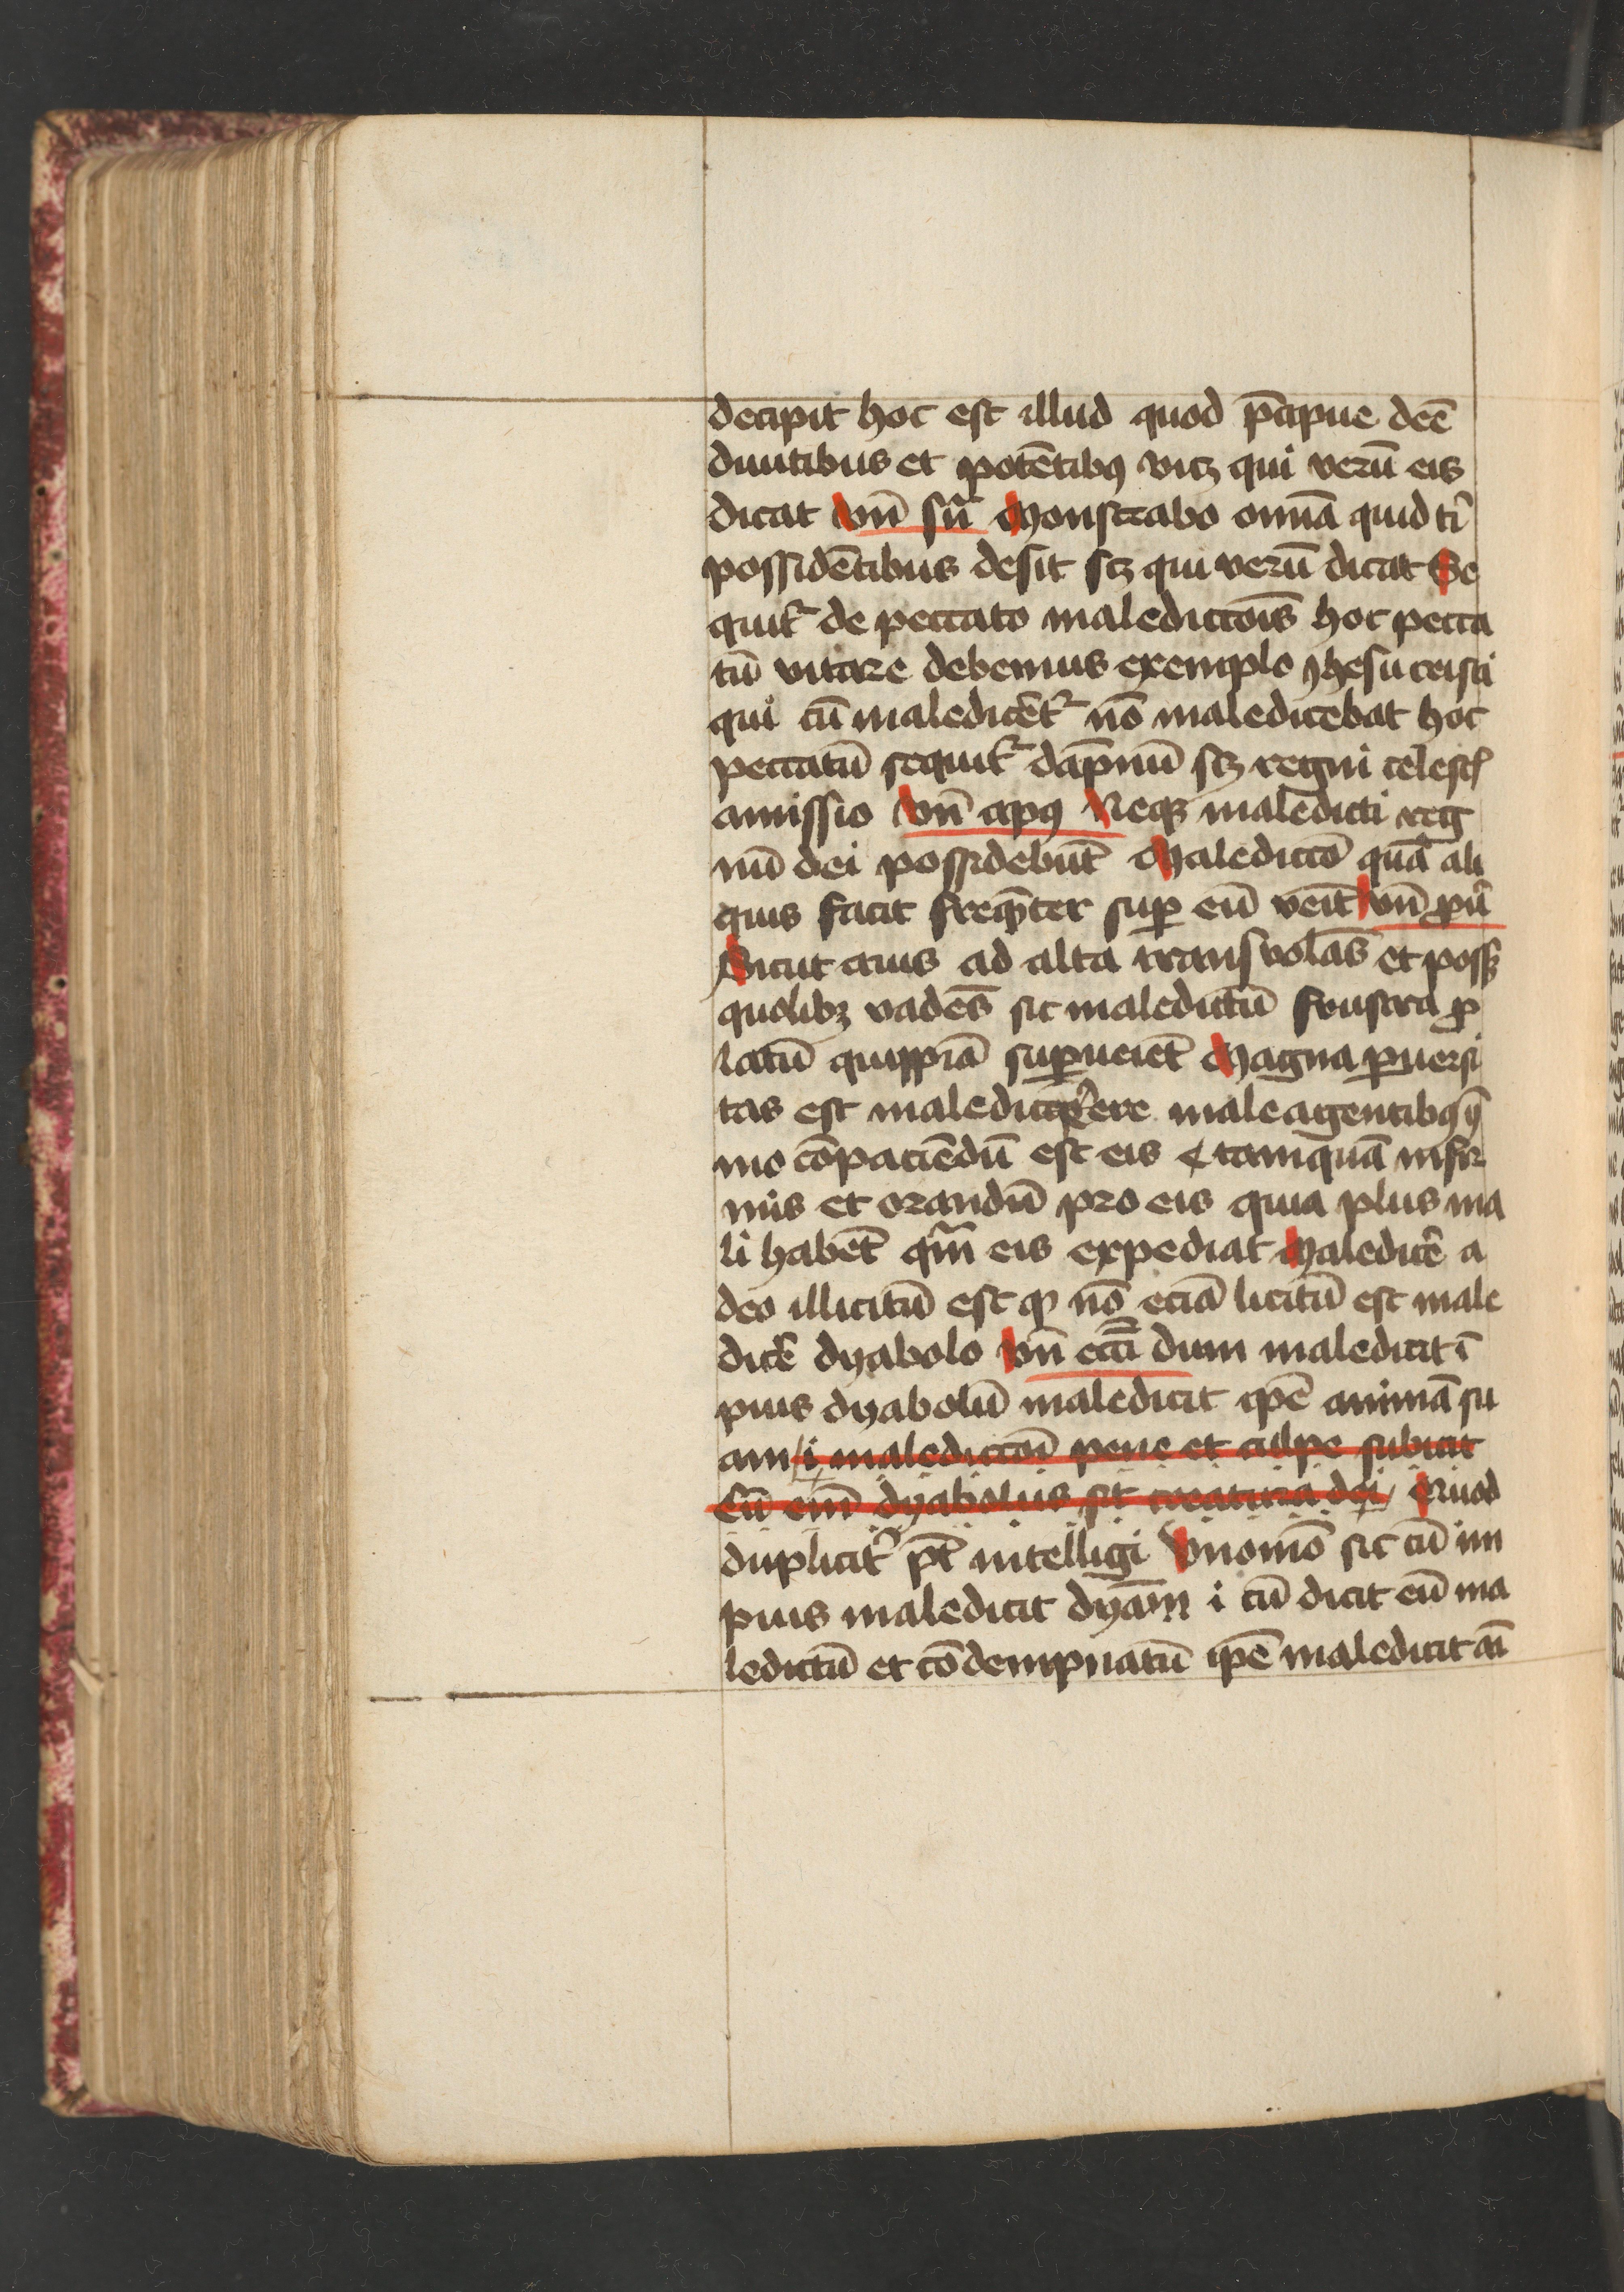 decipit hoc est illud quod p̄cipue deē
diuitibus et potētibꝰ vicꝫ qui verū eis
dicat vn̄ sn̄ Monstrabo omīa quid tī
possidētibus desit scꝫ qui verū dicat Se
quit᷑ de peccato maledictōis hoc pecca
tū vitare debemus exemplo yhesu cristi
qui cū maledicēt᷑ nō maledicebat hoc
peccatū sequit᷑ dāpnū scꝫ regni celestꝭ
amissio vn̄ apꝰ Neqꝫ maledicti reg
nū dei possidebūt Maledictō quā ali
quis facit freqn̄ter suꝑ eū veīt vn̄ ꝓū
Sicut auis ad alta transvolās et passꝭ
quolibꝫ vadēs sic maledictū frustra ꝓ
latū quippiā suꝑueiēt Magna ꝑuersi
tas est maledicere male agentibꝰ
mo cōpaciēdū est eis tamquā infir
mis et orandū pro eis quia plus ma
li habēt qm̄ eis expediat Maledicē a
deo illicitū est ꝙ nō eciā licitū est male
dicē dyabolo vn̄ eccī dum maledicit ī
pius dyabolū maledicit ip̄e animā su
am i maledictōi pene et culpe subicit
Cū eīm dyabolus sit creatura dei Quod
duplicit᷑ pt̄ intelligi vnomō sic cū im
pius maledicit dyām i cū dicit eū ma
ledictū et cōdempnatū ip̄e maledicit aī